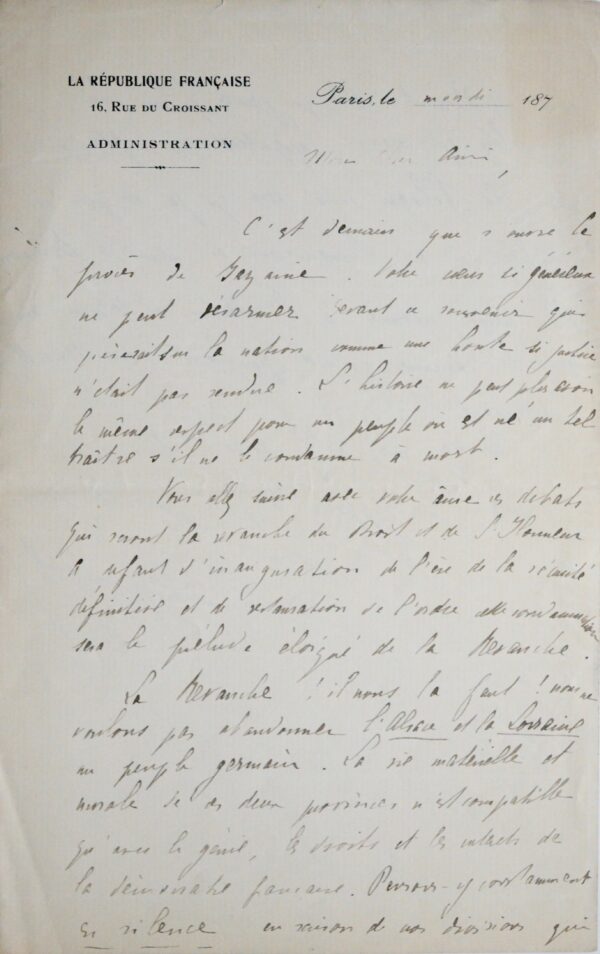 LA RÉPUBLIQUE FRANÇAISE
16, RUE DU CROISSANT
ADMINISTRATION
Paris, le mardi 187
Mon cher Ami,
C'est demain que s'ouvre le
procès de Bazaine. Votre cœur si généreux
ne peut désarmer devant ce souvenir qui
pèserait sur la nation comme une honte si justice
n'était pas rendue. L'histoire ne peut plus avoir
le même respect pour un peuple où est né un tel
traître s'il ne le condamne à mort.
Vous allez suivre avec votre âme ces débats
qui seront la revanche du Droit et de l'Honneur
d'inauguration de l'ère de la sécurité
définitive et de restauration de l'ordre cette condamnation
sera le prélude éloigné de la Revanche.
La Revanche ! il nous la faut ! nous ne
voulons pas abandonner l'Alsace et la Lorraine
au peuple germain. La vie matérielle et
morale de ces deux provinces n'est compatible
qu'avec le génie, les droits et les intérêts de
la démocratie française. Pensons-y constamment
en silence en raison de nos divisions qui